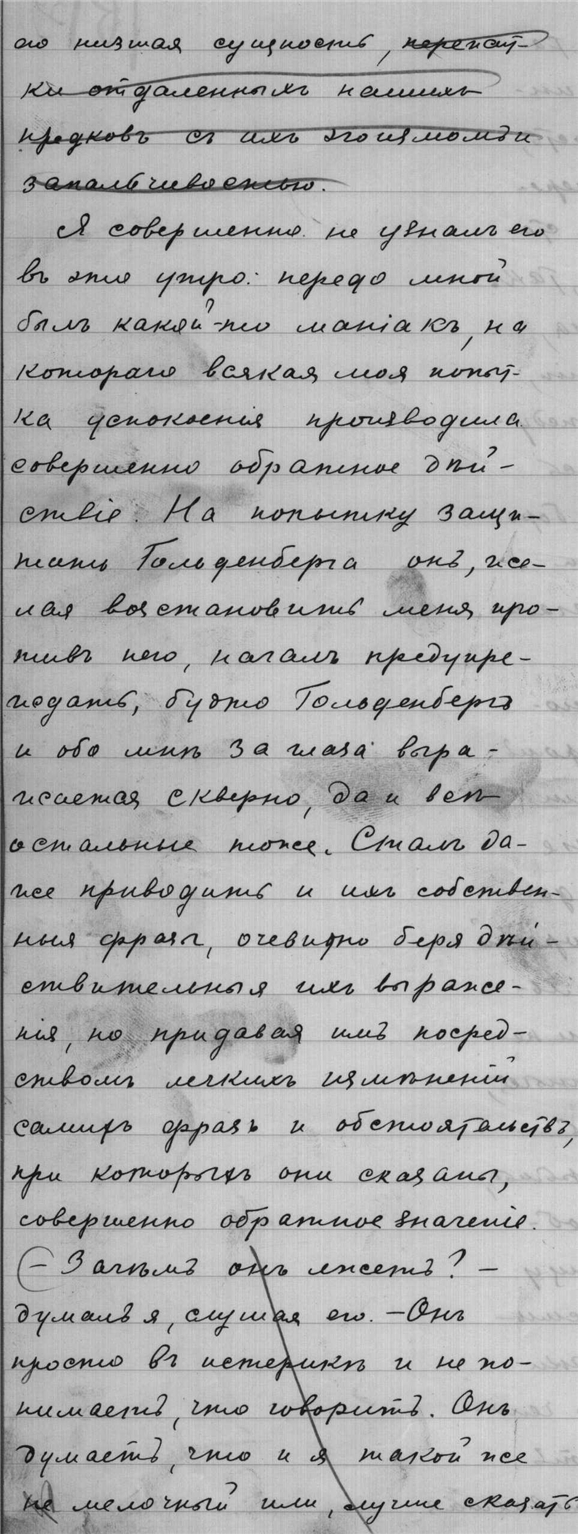 его низшая сущность, перепат-
ки отдаленныхъ нашихъ
предковъ съ ихъ эгоизмомъ и
запальчивостью.
Я совершенно не узналъ его
въ это утро: передо мной
былъ какой-то маніакъ, на
котораго всякая моя попыт-
ка успокоенія производила
совершенно обратное дѣй-
ствіе. На попытку защи-
тить Гольденберга онъ, же-
лая возстановить меня про-
тивъ него, началъ предупре-
ждать, будто Гольденбергъ
и обо мнѣ за глаза выра-
жается скверно, да и всѣ
остальные тоже. Сталъ да-
же приводить и ихъ собствен-
ныя фразы, очевидно беря дѣй-
ствительныя ихъ выраже-
нія, но придавая имъ посред-
ствомъ легкихъ измѣненій
самихъ фразъ и обстоятельствъ,
при которыхъ они сказаны,
совершенно обратное значеніе.
– Зачѣмъ онъ лжетъ? –
думалъ я, слушая его. – Онъ
просто въ истерикѣ и не по-
нимаетъ, что говоритъ. Онъ
думаетъ, что и я такой же
не мелочный или, лучше сказать